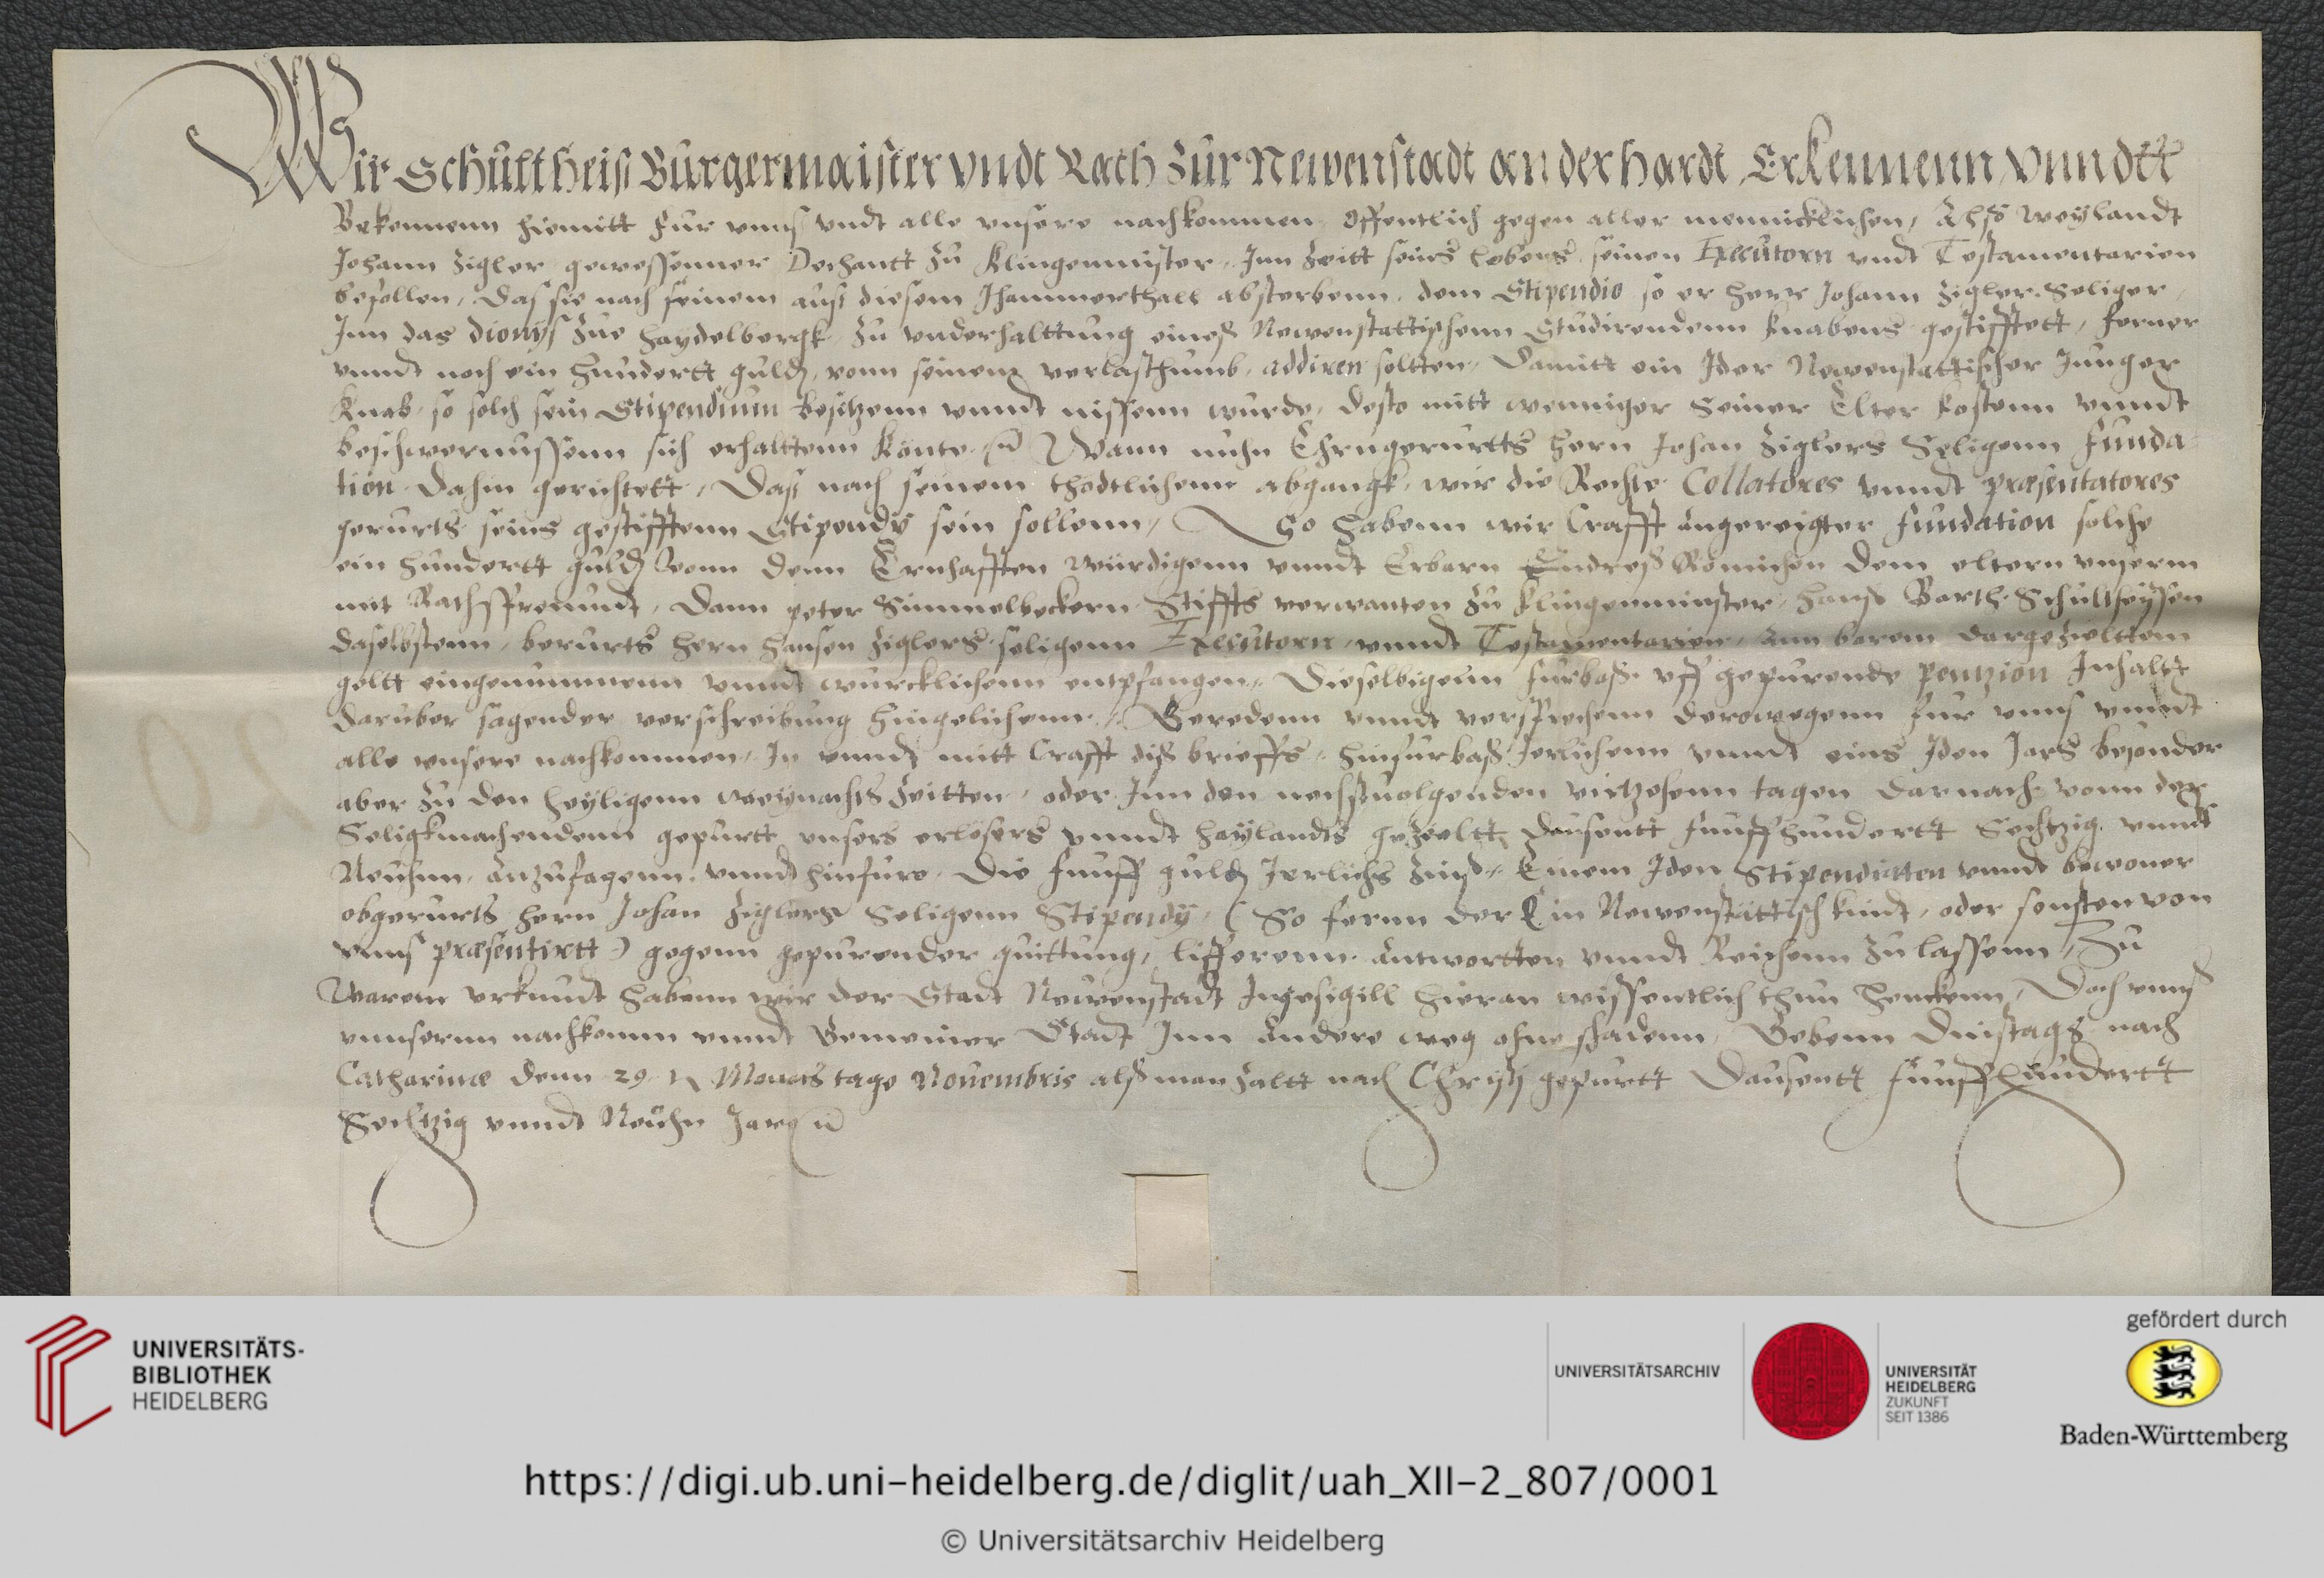 Wir Schultheis Burgermaister vndt Rath Zur Newenstadt an der hardt, Erkennenn vnndtt
Bekennenn hiemitt fur vnns vndt alle vnsere nachkommen, offentlich gegen aller mennicklichen, Alhs weylandt
Johann Zigler gewessenner Dechantt zu Klingenmüster, Inn Zeitt seins lebens, seinen Executorn vndt Testamentarien
befollen, das sie nach seinem auß diesem Jhammerthall absterbenn, dem Stipendio so er herr Johann Zigler Seliger,
Inn das Dionys Zue haydelbergk, zu vnderhalttung eineß Newenstattischenn Studirendenn knabens gestifftett, ferner
vnndt noch ein hundertt guld, vonn seinem verlasthumb, addiren soltten, damitt ein Jder Newenstattischer Junger
Knab, so solch sein Stipendium besitzenn vnndt nissenn wurde, desto mitt wenniger Seiner Elter kostenn vnndt
beschwernussenn sich erhalttenn könte. Wann nuhn Ehrngerurtts hern Johan Ziglers Seligenn funda
tion dahin gerichtett, das nach seinem thödtlichenn abgangk, wir die Rechte Collatores vnndt præsentatores
gerurts seins gestifftenn Stipendÿ sein sollenn, So habenn wir Crafft angereigter fundation solche
ein hundertt guld vonn denn Ernhafften würdigenn vnndt Erbarn Endreß Römichen dem eltern vnserm
mit Rathsfreundt, dann peter Simmelbeckern Stiffts verwanten zu Klingenminster, hanß Barth Schultheyssen
daselbstenn, berurts hern hansen Ziglers seligenn Executorn, vnndt Testamentarien, Ann barem dargezelttem
geltt eingenummenn vnndt wurcklichenn entpfangen, Dieselbigenn furbaß vff gepurende pentzion Inhaltt
daruber sagender verschreibung hingelichenn, Geredenn vnndt versprechenn derowegenn fur vnns vnndt
alle vnsere nachkommen, In vnndt mitt Crafft diß brieffs, hinfurbaß Jerlichenn vnndt eins Jden Jars besonder
aber zu den heyligenn weynachts Zeitten, oder Inn den nechstuolgenden virtzehenn tagen darnach vonn der
Seligkmachendenn gepurtt vnsers erlösers vnndt haylandts gezeeltt dausentt funffhundertt Sechtzig vnndt
Neuhnn, anzufagenn vnndt hinfuro, die funff guld Jerlichs Zinß, Einem Jden Stipendiatten vnndt bewoner
obgerurts hern Johan Ziglerss Seligenn Stipendÿ, (So fernn der Ein Newenstättisch kindt, oder sonsten von
vnns præsentirtt) gegenn gepurender quittung, lifferenn, Antwortten vnndt Reichenn zu lassenn, Zu
Warem vrkundt habenn wir der Stadt Newenstadt Ingesigill hieran wissentlich thun henckenn, Doch vnnß
vnnsernn nachkomn vnndt Gemeiner Stadt Inn Andere weg ohne schadenn, Gebenn Dinstags nach
Catharinæ denn 29 Monats tage Nouembris alß man zaltt nach Christj gepurtt Dausentt funffhundertt
Sechtzig vnndt Neuhn Jare
20
UNIVERSITÄTS-
BIBLIOTHEK
HEIDELBERG
UNIVERSITÄTSARCHIV
UNIVERSITÄT
HEIDELBERG
ZUKUNFT
SEIT 1386
gefördert durch
Baden-Württemberg
https://digi.ub.uni-heidelberg.de/diglit/uah_XII-2_807/0001
© Universitätsarchiv Heidelberg